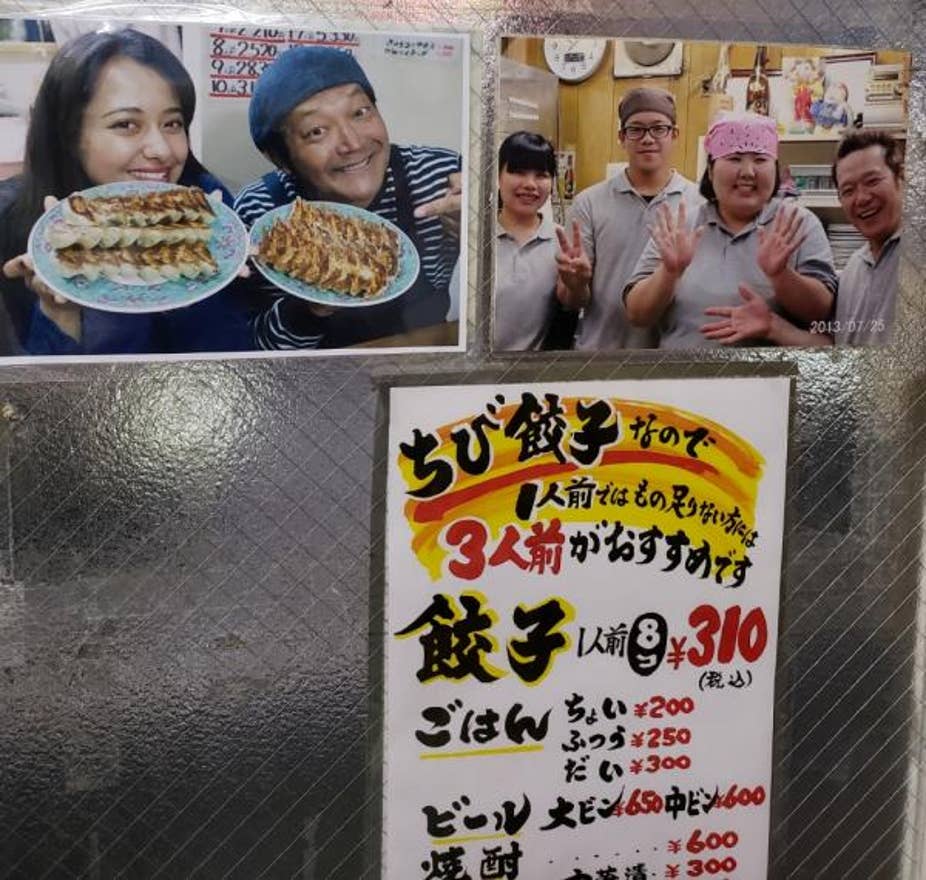 8 2520
9 283
10 31
2013/07/25
ちび餃子なので
1人前ではもの足りない方には
3人前がおすすめです
餃子 1人前 8コ ¥310
(税込)
ごはん ちょい ¥200
ふつう ¥250
だい ¥300
ビール 大ビン ¥650 中ビン ¥600
焼酎 ...... ¥600
¥300